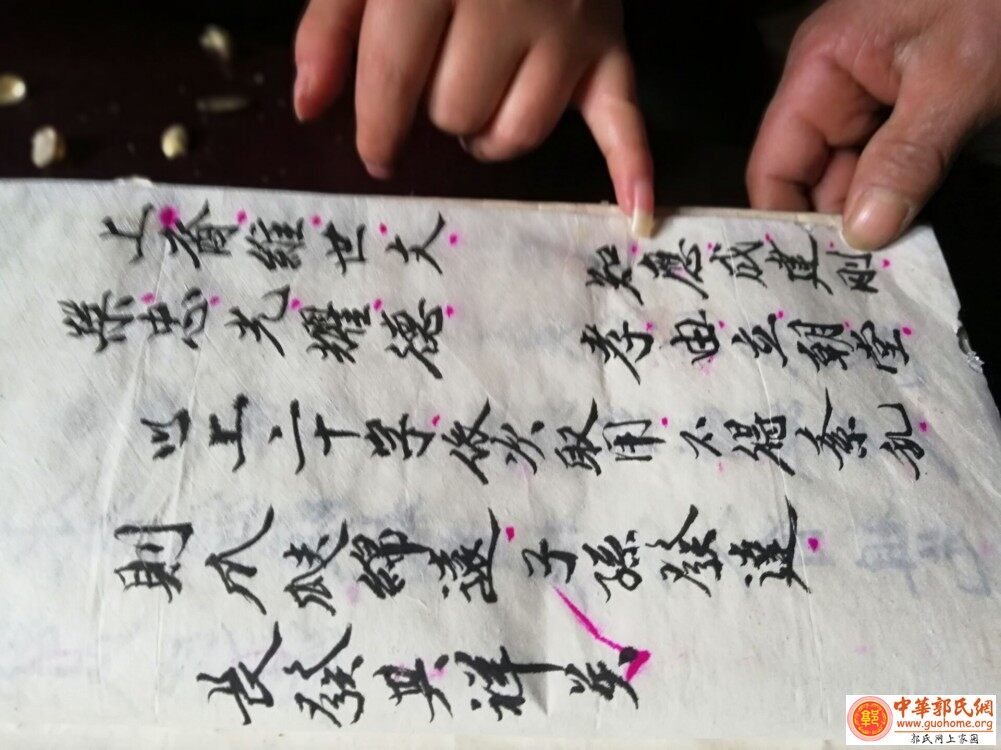 上維世大 知應成建剛
榮忠光耀德 孝由立朝堂
以上二十字依次取用不得紊乱
則瓜瓞綿遠子孫發達
長發其祥矣
中華郭氏網
www.guohome.org
郭氏网上家园